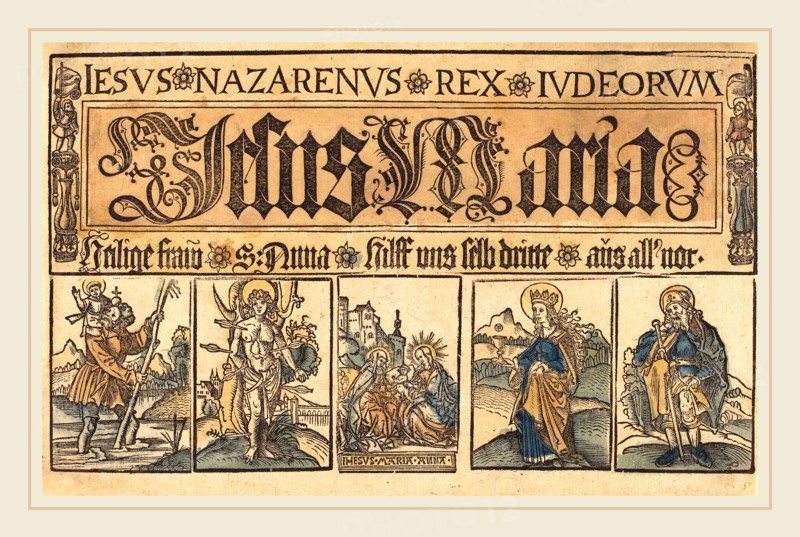 IESVS NAZARENVS REX IVDEORVM
Jesus Maria
Heilige fraw S: Anna hilff uns selb dritte aus all' not.
IHESVS · MARIA · ANNA ·